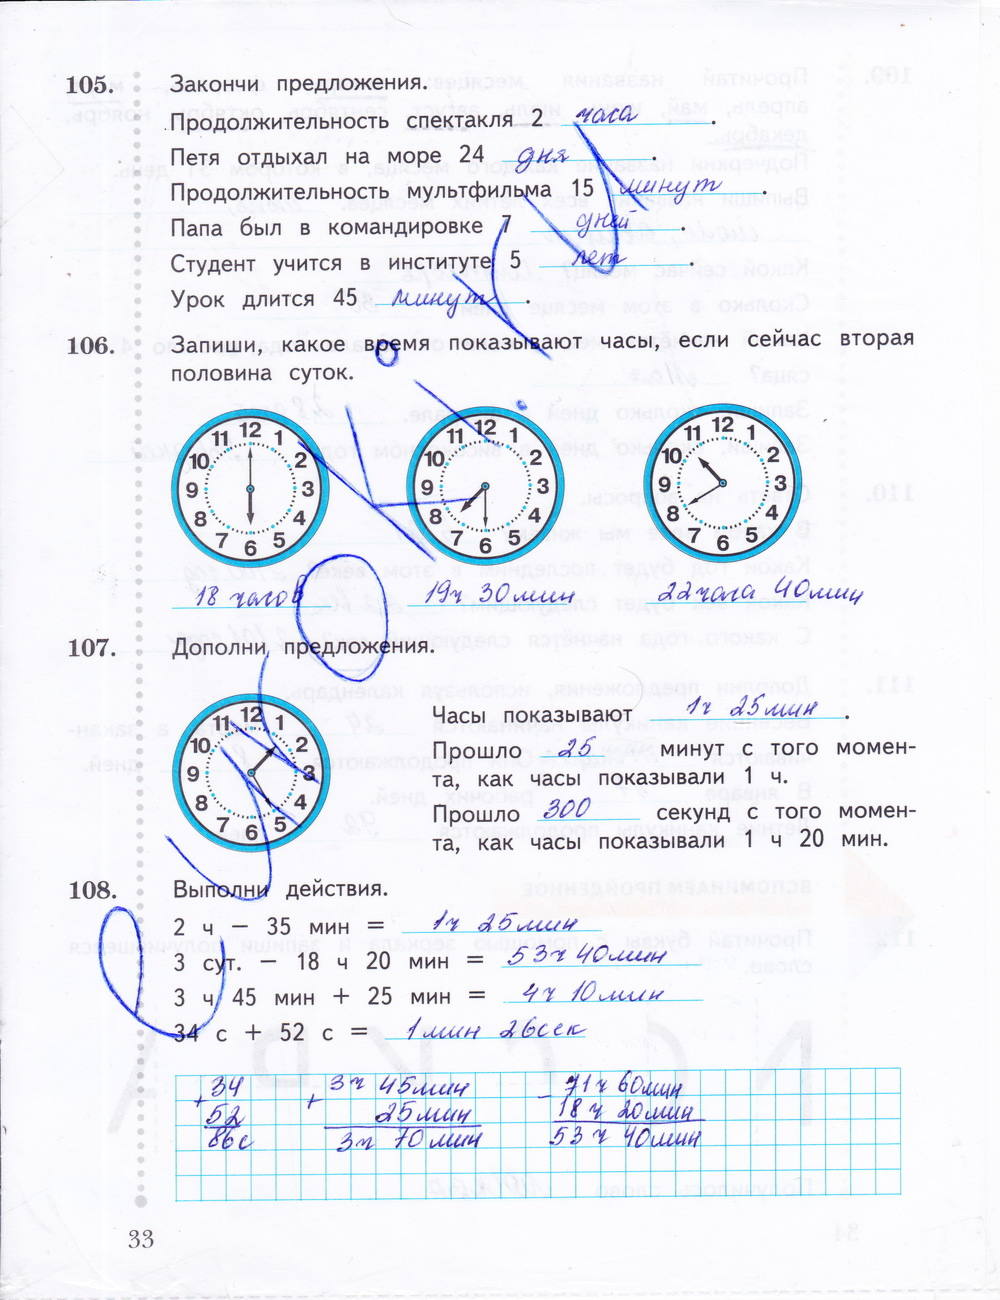 105. Закончи предложения.
Продолжительность спектакля 2 часа.
Петя отдыхал на море 24 дня.
Продолжительность мультфильма 15 минут.
Папа был в командировке 7 дней.
Студент учится в институте 5 лет.
Урок длится 45 минут.
106. Запиши, какое время показывают часы, если сейчас вторая
половина суток.
12 1 2 3 4 5 6 7 8 9 10 11
12 1 2 3 4 5 6 7 8 9 10 11
12 1 2 3 4 5 6 7 8 9 10 11
18 часов 19ч 30мин 22часа 40мин
107. Дополни предложения.
12 1 2 3 4 5 6 7 8 9 10 11
Часы показывают 1ч 25мин.
Прошло 25 минут с того момен-
та, как часы показывали 1 ч.
Прошло 300 секунд с того момен-
та, как часы показывали 1 ч 20 мин.
108. Выполни действия.
2 ч – 35 мин = 1ч 25мин
3 сут. – 18 ч 20 мин = 53ч 40мин
3 ч 45 мин + 25 мин = 4ч 10мин
34 с + 52 с = 1мин 26сек
34 3ч 45мин 71ч 60мин
+ 52 + 25мин – 18ч 20мин
86с 3ч 70мин 53ч 40мин
33